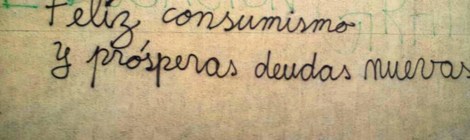 Feliz consumismo
y prósperas deudas nuevas